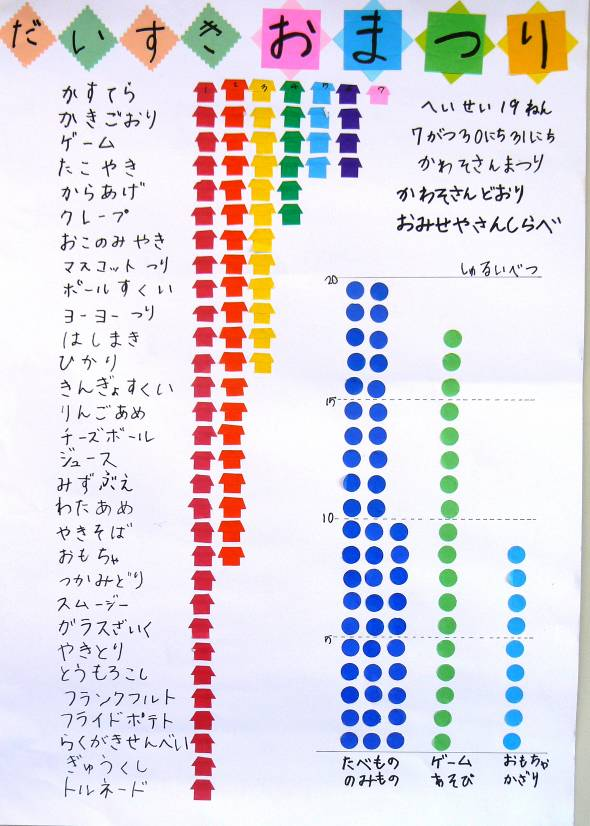 だいすきおまつり
1 2 3 4 5 6 7
かすてら
かきごおり
ゲーム
たこやき
からあげ
クレープ
おこのみやき
マスコットつり
ボールすくい
ヨーヨーつり
はしまき
ひかり
きんぎょすくい
りんごあめ
チーズボール
ジュース
みずぶえ
わたあめ
やきそば
おもちゃ
つかみどり
スムージー
ガラスざいく
やきとり
とうもろこし
フランクフルト
フライドポテト
らくがきせんべい
ぎゅうくし
トルネード
へいせい19ねん
7がつ30にち31にち
かわそさんまつり
かわそさんどおり
おみせやさんしらべ
しゅるいべつ
20
15
10
5
たべもの
のみもの
ゲーム
あそび
おもちゃ
かざり